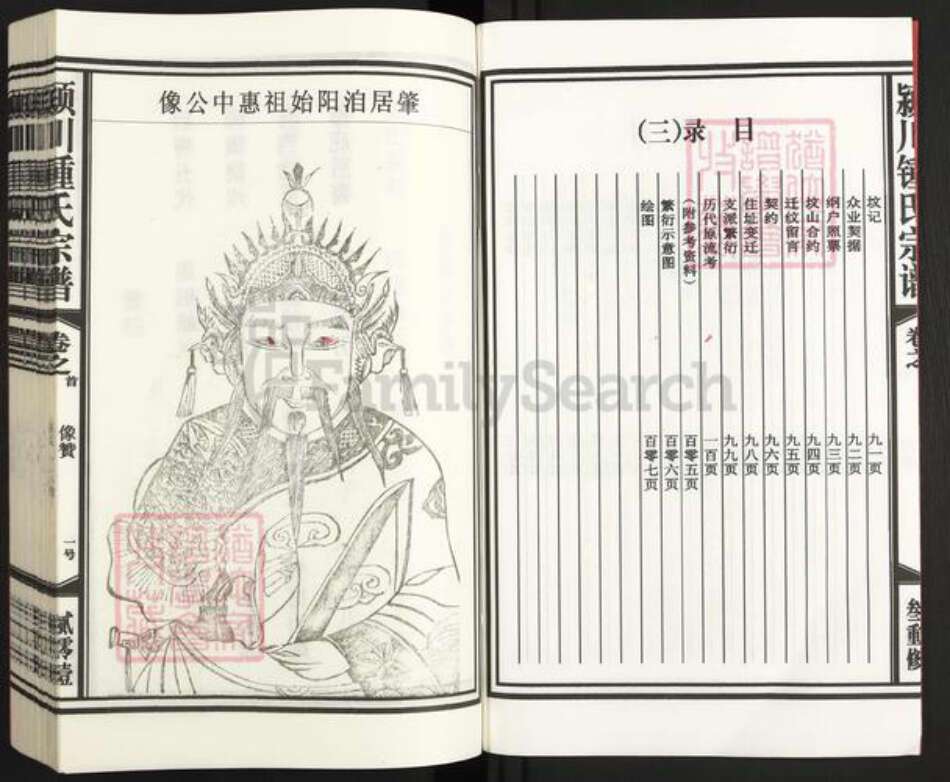 颍川锺氏宗谱
卷之
叁重修
目录(三)
坟记 九一页
众业契据 九二页
纲户照票 九三页
坟山合约 九四页
迁纹留言 九五页
契约 九六页
住址变迁 九八页
支派繁衍 九九页
历代原流考 一百页
(附参考资料) 百零五页
繁衍示意图 百零六页
绘图 百零七页
肇居洎阳始祖惠中公像
颍川锺氏宗谱
卷之首
像贊
一号
贰零壹
FamilySearch